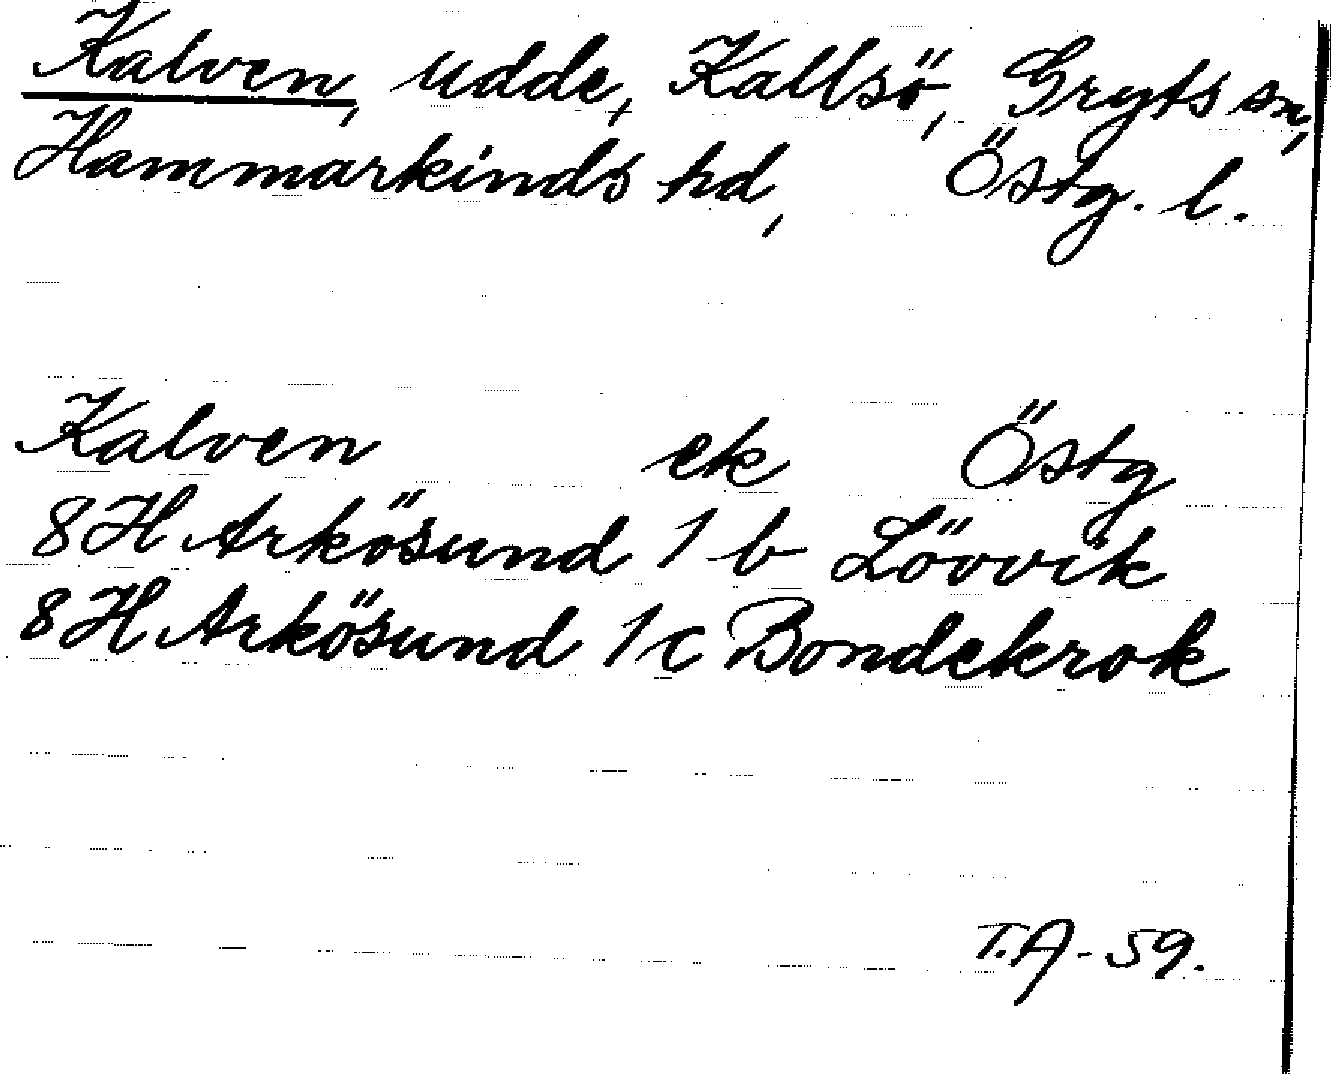 Kalven, udde, Kallsö, Gryts sn,
Hammarkinds hd, Östg. l.
Kalven ek Östg
8H Arkösund 1 b Lövvik
8H Arkösund 1c Bondekrok
T.A - 59.